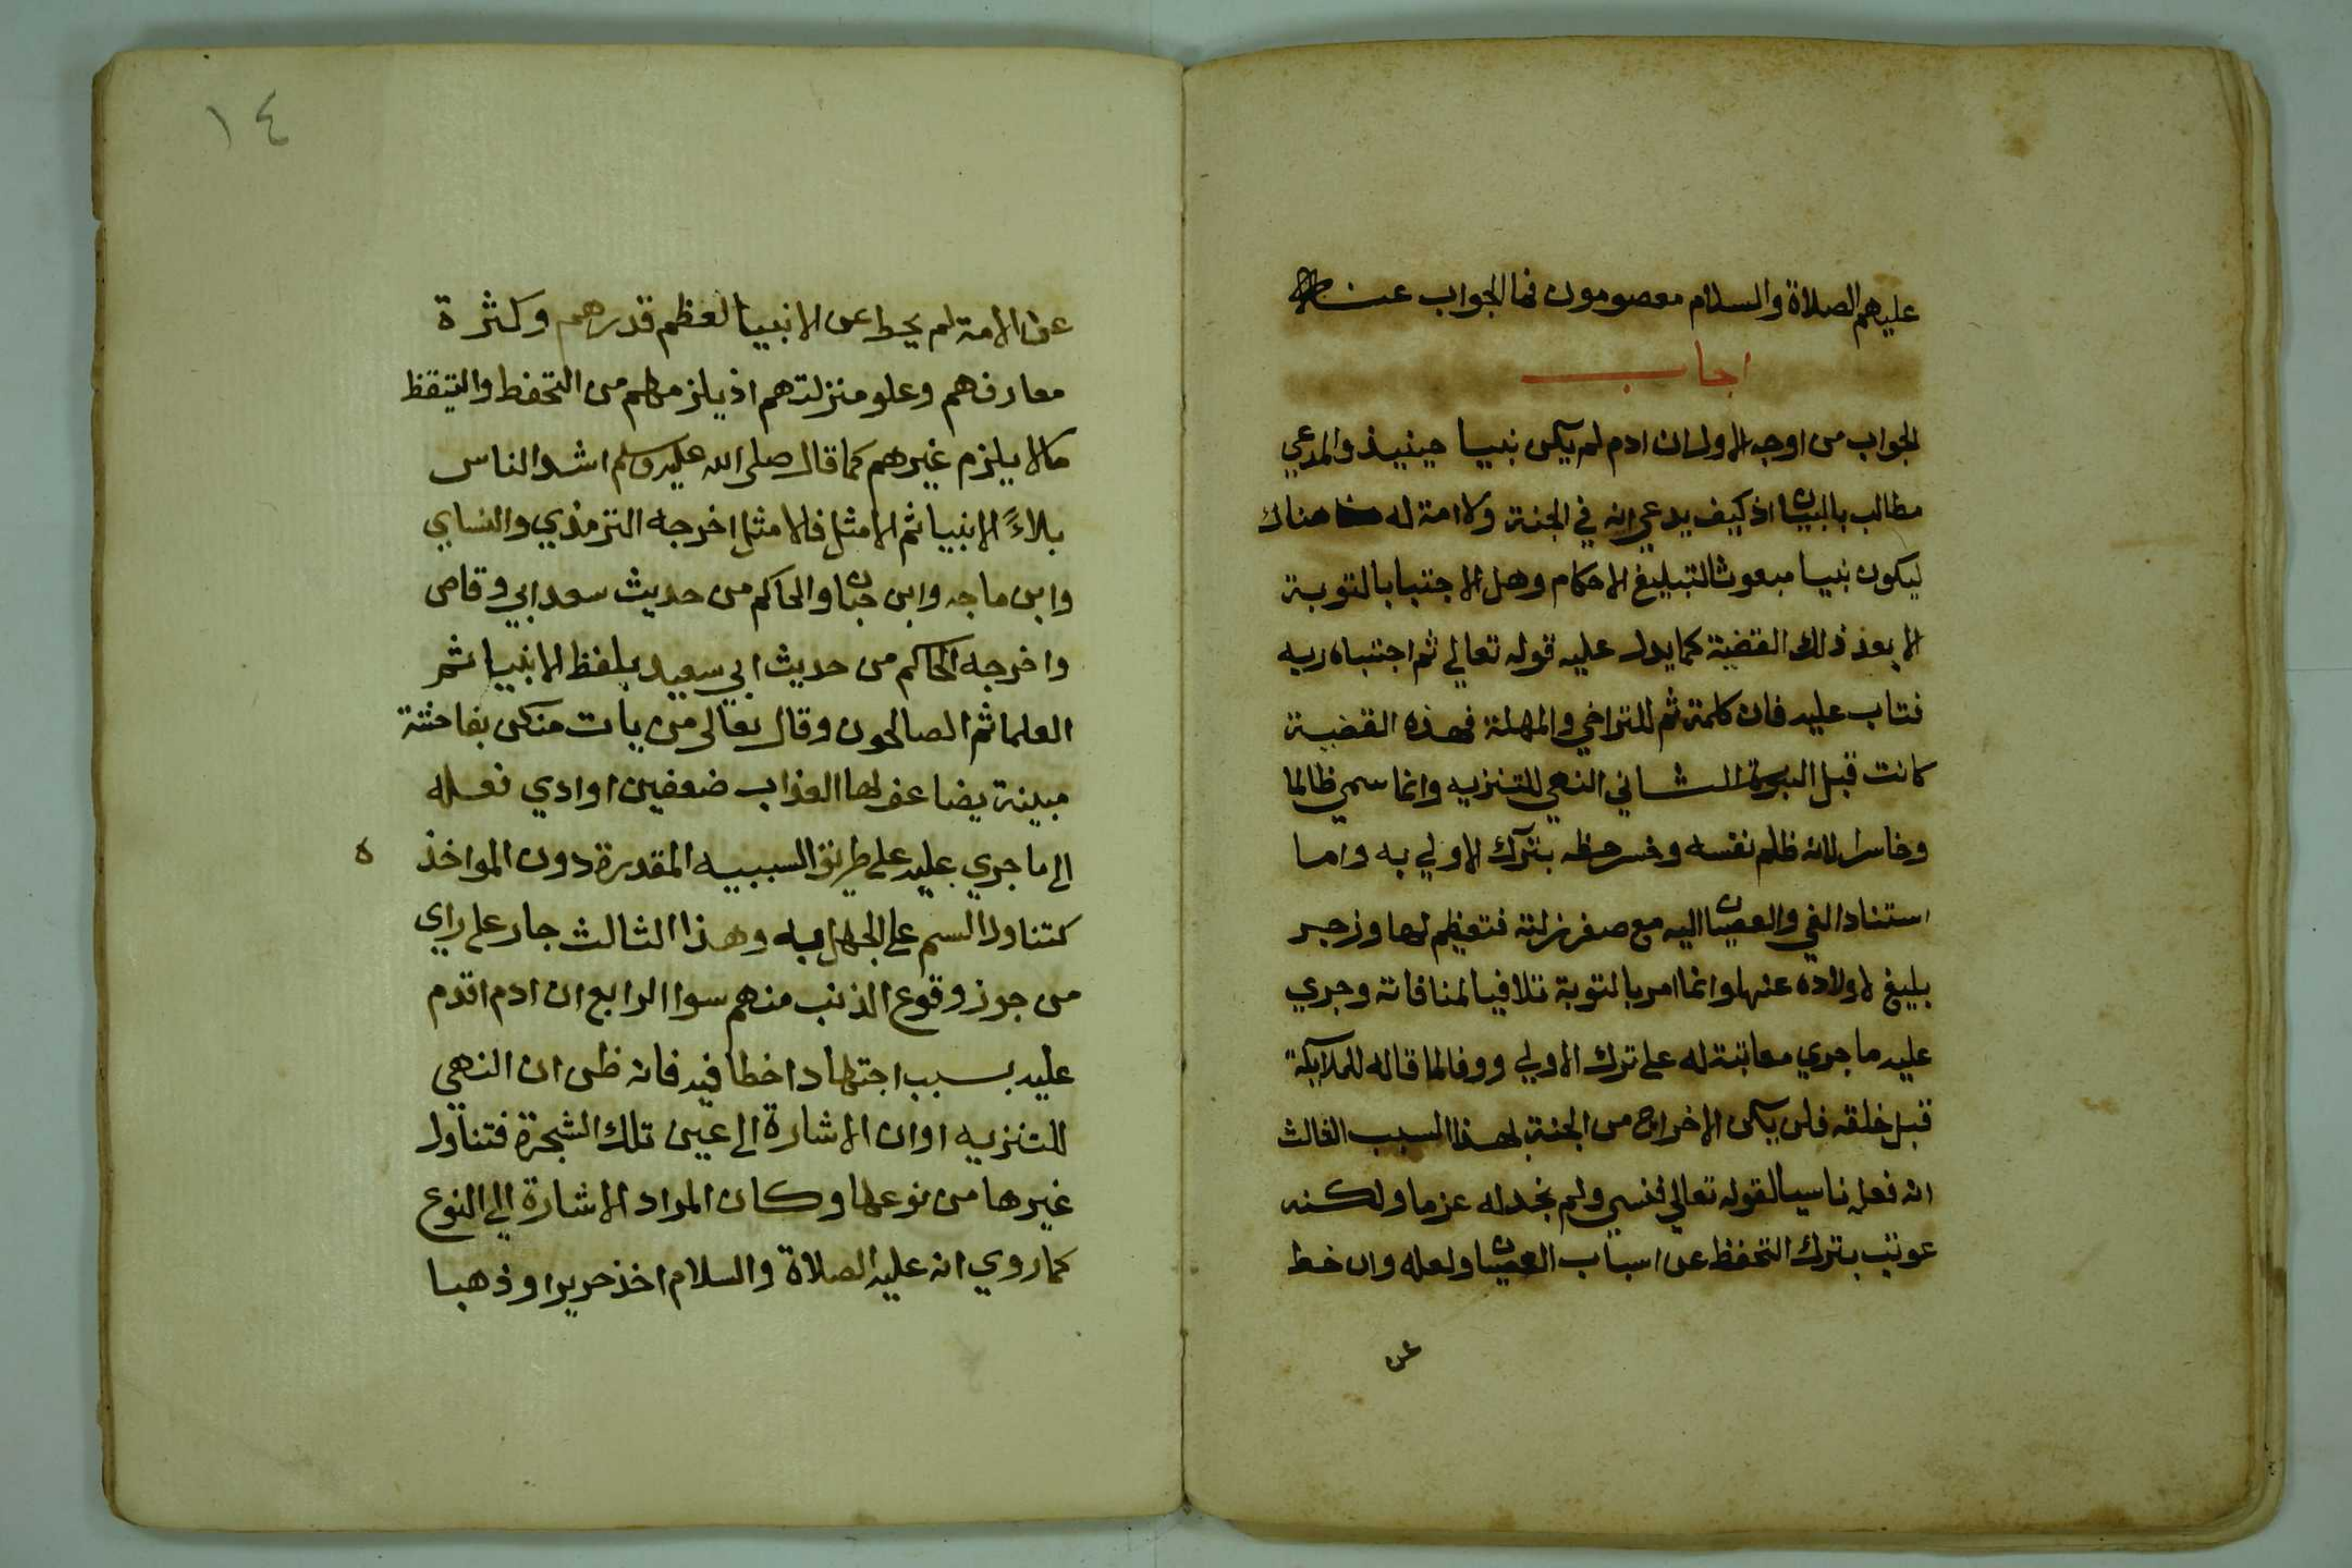 عليهم الصلاة والسلام معصومون فما الجواب عن
اجاب
الجواب من اوجه الاول ان ادم لم يكن نبيا حينيذ والمدعي
مطالب بالبيان اذ كيف يدعي انه في الجنة ولا امة له هناك
ليكون نبيا مبعوثا لتبليغ الاحكام وهل الاجتبا بالتوبة
الا بعد ذلك القضية كما يدل عليه قوله تعالي ثم اجتباه ربه
فتاب عليه فان كلمة ثم للتراخي والمهلة فهذه القضية
كانت قبل النبوة الثاني النهي للتنزيه وانما سمي ظالما
وخاسرا لانه ظلم نفسه وخسر حظه بترك الاولي به واما
استناد الغي والعصيان اليه مع صغر زلته فتعظيم لها وزجر
بليغ لاولاده عنها وانما امر بالتوبة تلافيا لمنافاته وجري
عليه ما جري معاتبة له علي ترك الاولي ووفا لما قاله للملايكة
قبل خلقه فلن يكن الاخراج من الجنة لهذا السبب الثالث
انه فعل ناسيا لقوله تعالي فنسي ولم نجد له عزما ولكنه
عوتب بترك التحفظ عن اسباب العصيان ولعله وان خط
عن
١٤
عن الامة لم يحط عن الانبيا لعظم قدرهم وكثرة
معارفهم وعلو منزلتهم اذ يلزمهم من التحفظ والتيقظ
مالا يلزم غيرهم كما قال صلى الله عليه وسلم اشد الناس
بلاءً الانبيا ثم الامثل فالامثل اخرجه الترمذي والنساي
وابن ماجه وابن حبان والحاكم من حديث سعد ابي وقاص
واخرجه الحاكم من حديث ابي سعيد بلفظ الانبيا ثم
العلما ثم الصالحون وقال تعالى من يات منكن بفاحشة
مبينة يضاعف لها العذاب ضعفين او ادي فعله
الي ما جري عليه علي طريق السببيه المقدرة دون المواخذ ه
كتناول السم علي الجهل به وهذا الثالث جار علي راي
من جوز وقوع الذنب منهم سوا الرابع ان ادم اقدم
عليه بسبب اجتهاد اخطا فيه فانه ظن ان النهي
للتنزيه او ان الاشارة الي عين تلك الشجرة فتناول
غيرها من نوعها وكان المراد الاشارة الي النوع
كما روي انه عليه الصلاة والسلام اخذ حريرا وذهبا